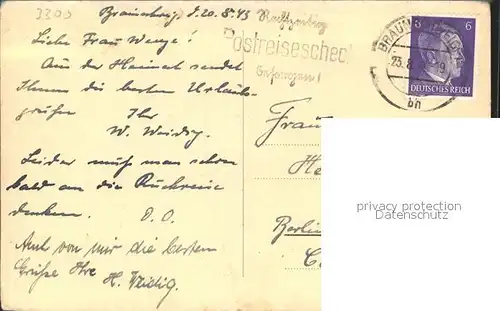 3300
Braunschweig, d. 20.8.43
Liebe Frau Wenze!
Aus der Heimat sendet
Ihnen die besten Urlaubs-
grüße Ihr
W. Weidig.
Leider muß man schon
bald an die Rückreise
denken. D. O.
Auch von mir die besten
Grüße Ihre
H. Weidig.
Postreisescheck
BRAUN
23.8.
bh
3 6
DEUTSCHES REICH
Frau
He
Berlin
privacy protection
Datenschutz